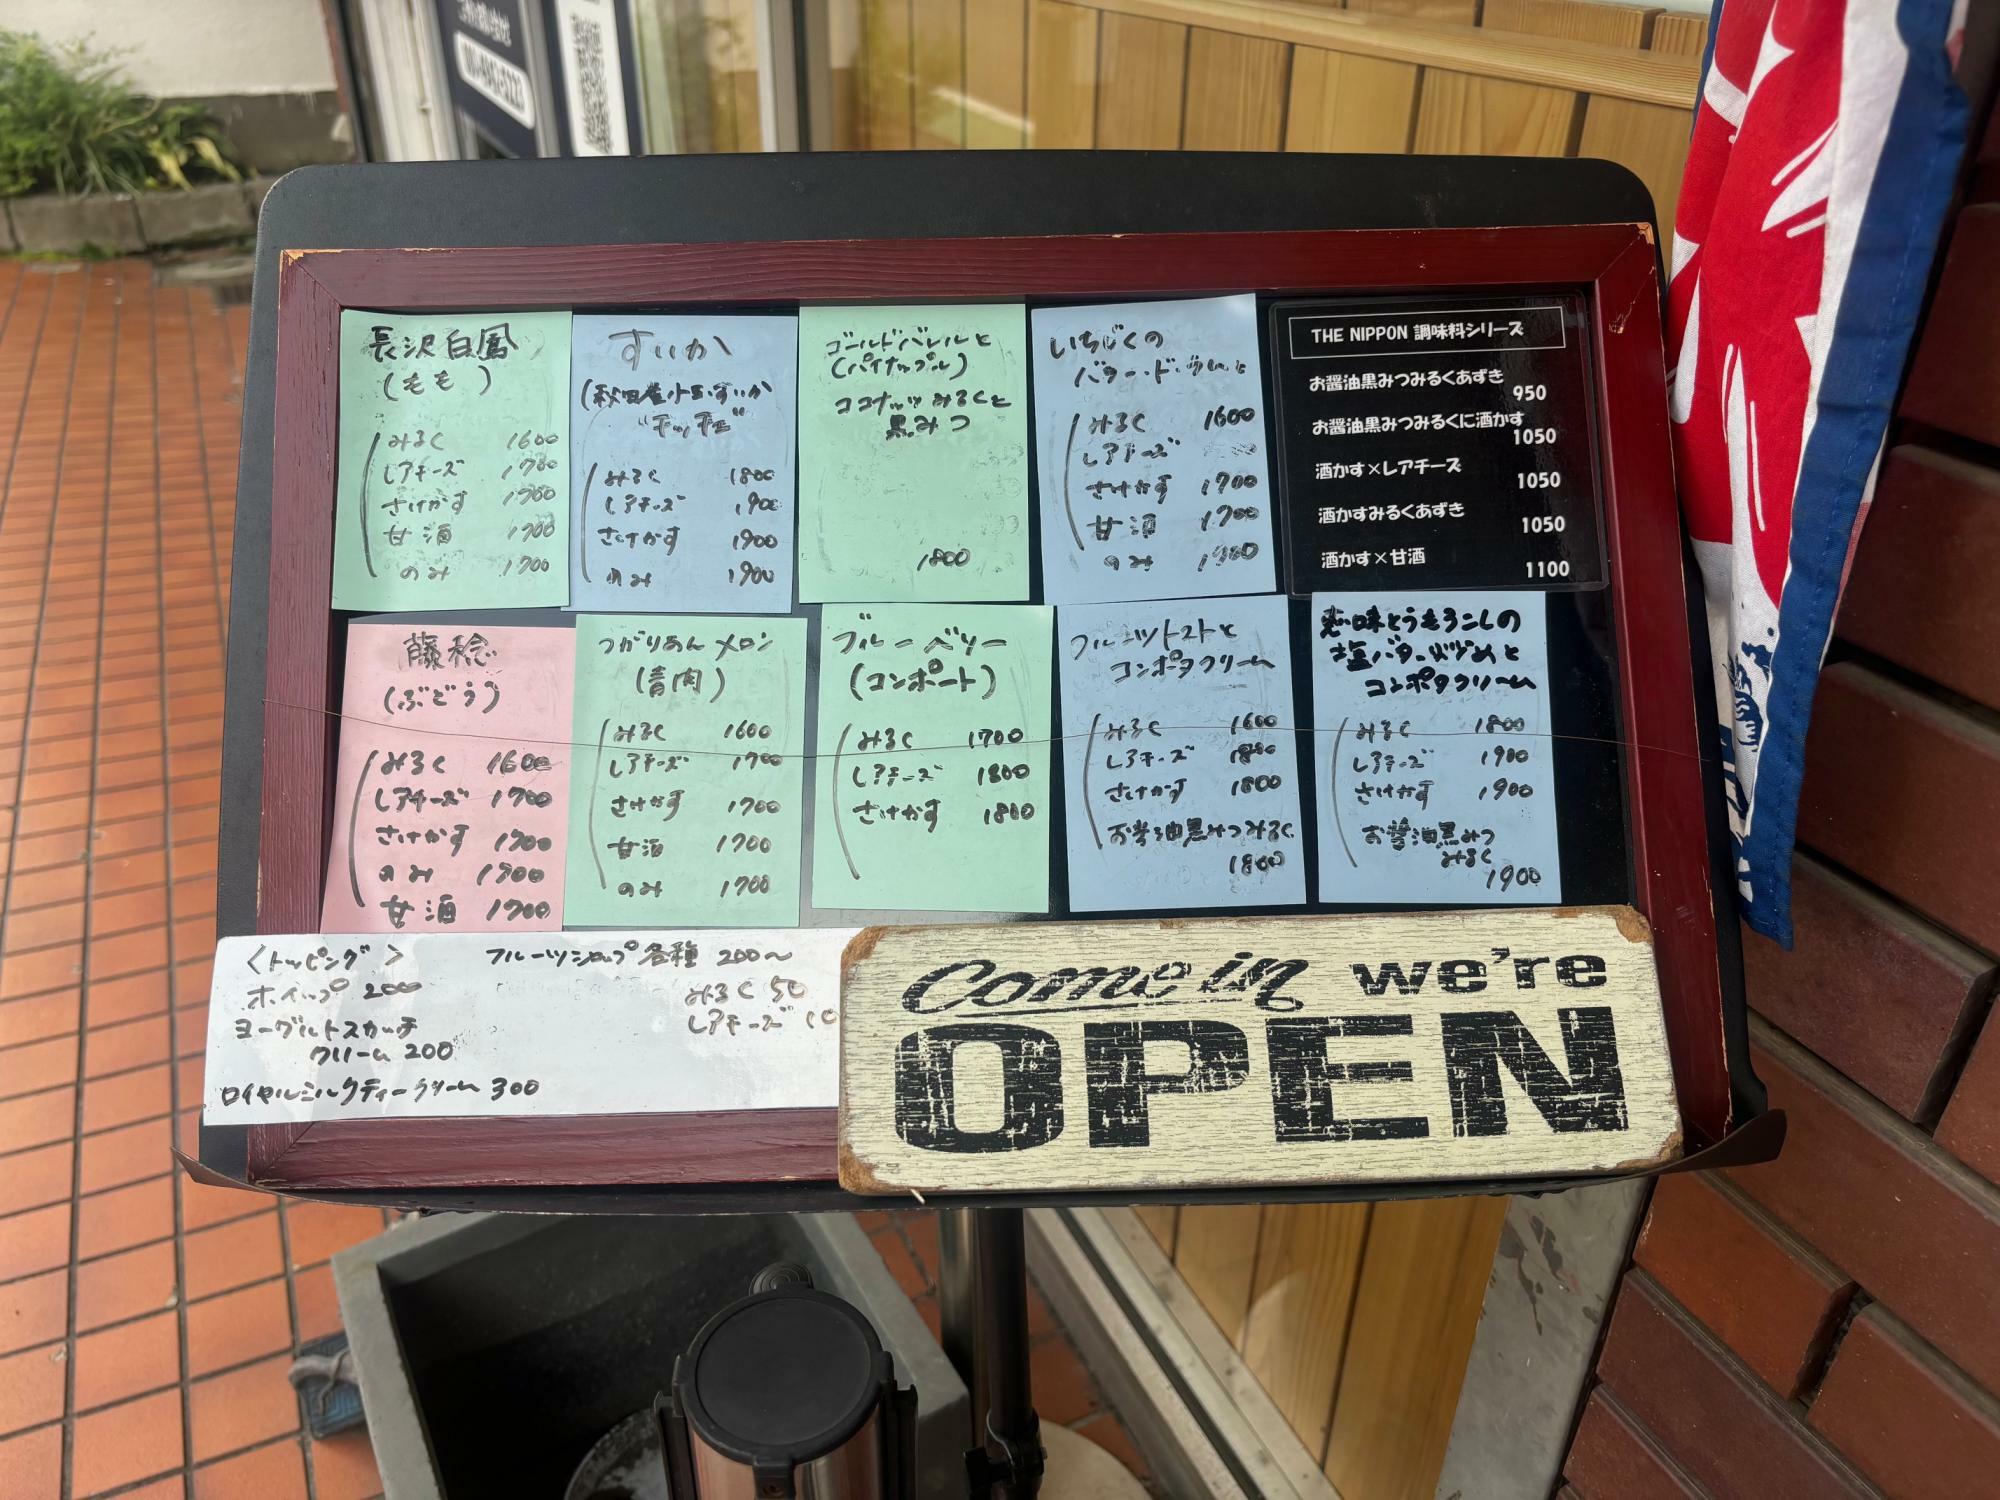 01-4841-5223
長沢白鳳
(もも)
みるく 1600
レアチーズ 1700
さけかす 1700
甘酒 1700
のみ 1700
すいか
(秋田産小玉すいか
みるく 1800
レアチーズ 1900
さけかす 1900
のみ 1900
ゴールドバレルと
(パイナップル)
ココナッツみるくと
黒みつ
1800
いちじくの
みるく 1600
レアチーズ
さけかす 1700
甘酒 1700
のみ 1700
THE NIPPON 調味料シリーズ
お醤油黒みつみるくあずき
950
お醤油黒みつみるくに酒かす
1050
酒かす×レアチーズ
1050
酒かすみるくあずき
1050
酒かす×甘酒
1100
藤稔
(ぶどう)
みるく 1600
レアチーズ 1700
さけかす 1700
のみ 1700
甘酒 1700
つがりあんメロン
(青肉)
みるく 1600
レアチーズ 1700
さけかす 1700
甘酒 1700
のみ 1700
ブルーベリー
(コンポート)
みるく 1700
レアチーズ 1800
さけかす 1800
フルーツトマトと
コンポタクリーム
みるく 1600
レアチーズ 1800
さけかす 1800
お醤油黒みつみるく
1800
恵味とうもろこしの
塩バターと
コンポタクリーム
みるく 1800
レアチーズ 1900
さけかす 1900
お醤油黒みつ
みるく
1900
<トッピング>
ホイップ 200
ヨーグルトスカッチ
クリーム 200
ロイヤルミルクティークリーム 300
フルーツシロップ各種 200〜
みるく 50
レアチーズ 10
Come in we're
OPEN